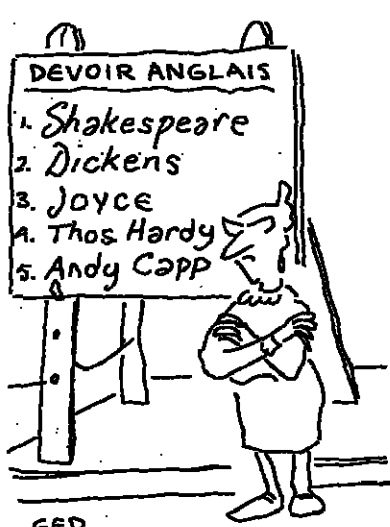 DEVOIR ANGLAIS
1. Shakespeare
2. Dickens
3. Joyce
4. Thos Hardy
5. Andy Capp
GED